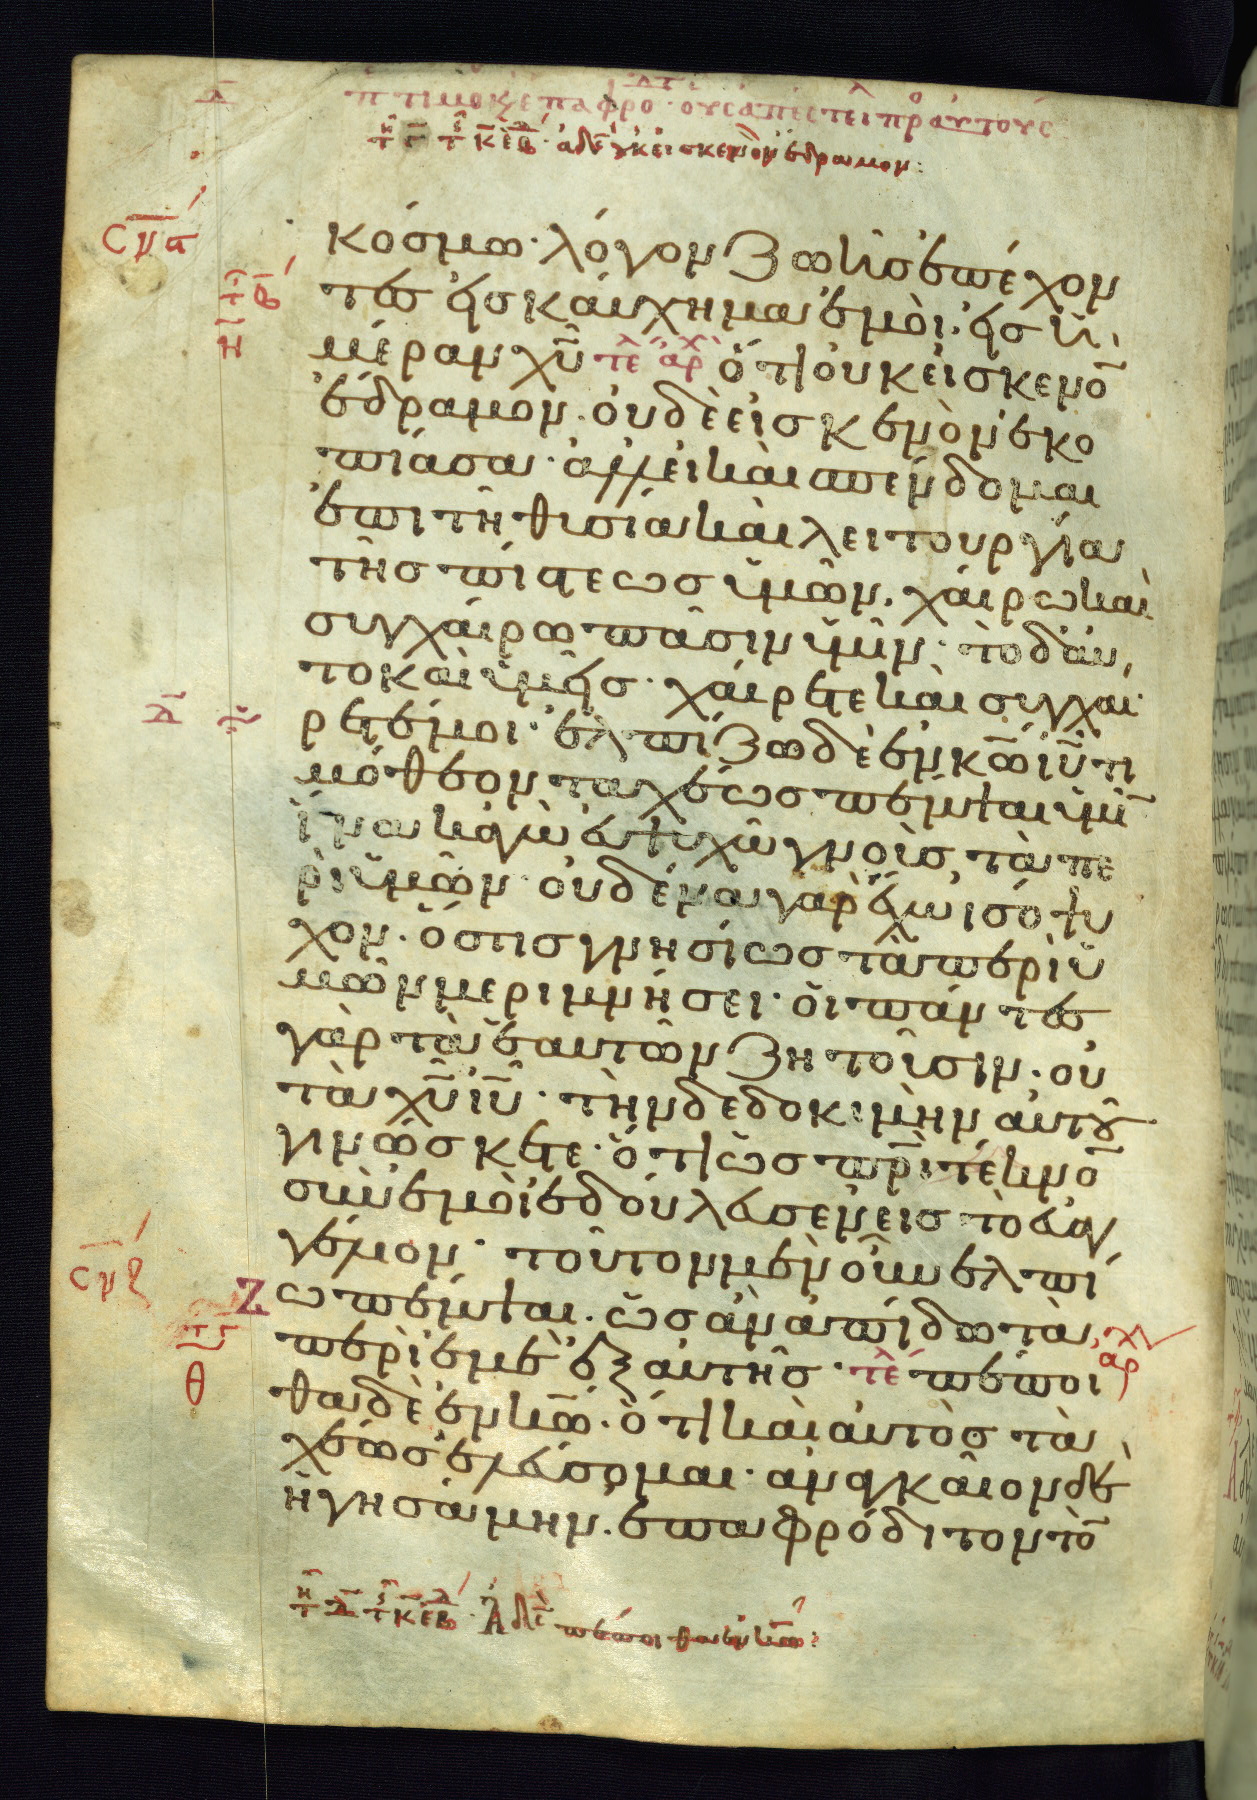 π τιμοκ επαφρο · ους απεστει πρ αυτους
τ κε β · ἀδε οὐκ εἰς κενὸν ἔδραμον:
ϲμα
κόσμω· λόγον ζωῆς ἐπέχον
τες εἰς καύχημα ἐμοὶ· εἰς ἡ
μέραν χυ τε αρχ ὅτι οὐκ εἰς κενο
ἔδραμον· οὐδὲ εἰς κενὸν ἐκο
πίασα· ἀλλ εἰ καὶ σπένδομαι
ἐπὶ τῆ θυσία καὶ λειτουργία
τῆς πίστεως ὑμῶν, χαίρω καὶ
συγχαίρω πᾶσιν ὑμῖν· τὸ δ αὐ
το καὶ ὑμεῖς· χαίρετε καὶ συγχαί
ρετέ μοι· ἐλπίζω δὲ ἐν κω ιυ τι
μόθεον ταχέως πέμψαι ὑμῖ
ἵνα κἀγὼ εὐψυχῶ γνοὺς τὰ πε
ρὶ ὑμῶν· οὐδένα γὰρ ἔχω ἰσόψυ
χον· ὅστις γνησίως τὰ περὶ ὑ
μῶν μεριμνήσει· οἱ πάντες
γὰρ τὰ ἑαυτῶν ζητοῦσιν· οὐ
τὰ χυ ιυ· τὴν δὲ δοκιμὴν αὐτου
γινώσκετε· ὅτι ὡς πρι τέκνο
σὺν ἐμοὶ ἐδούλευσεν εἰς τὸ εὐαγ
γέλιον· τοῦτον μὲν οὖν ἐλπί
ϲμζ
ζω πέμψαι· ὡς ἂν ἀπίδω τὰ
περὶ ἐμὲ ἐξαυτῆς· τε πέποι
αρχ
θ
θα δὲ ἐν κω· ὅτι καὶ αὐτὸς τα
χέως ἐλεύσομαι· ἀναγκαῖον δὲ
ἡγησάμην· ἐπαφρόδιτον το
τ κε β · Ἀδε πέποιθα ἐν κω: